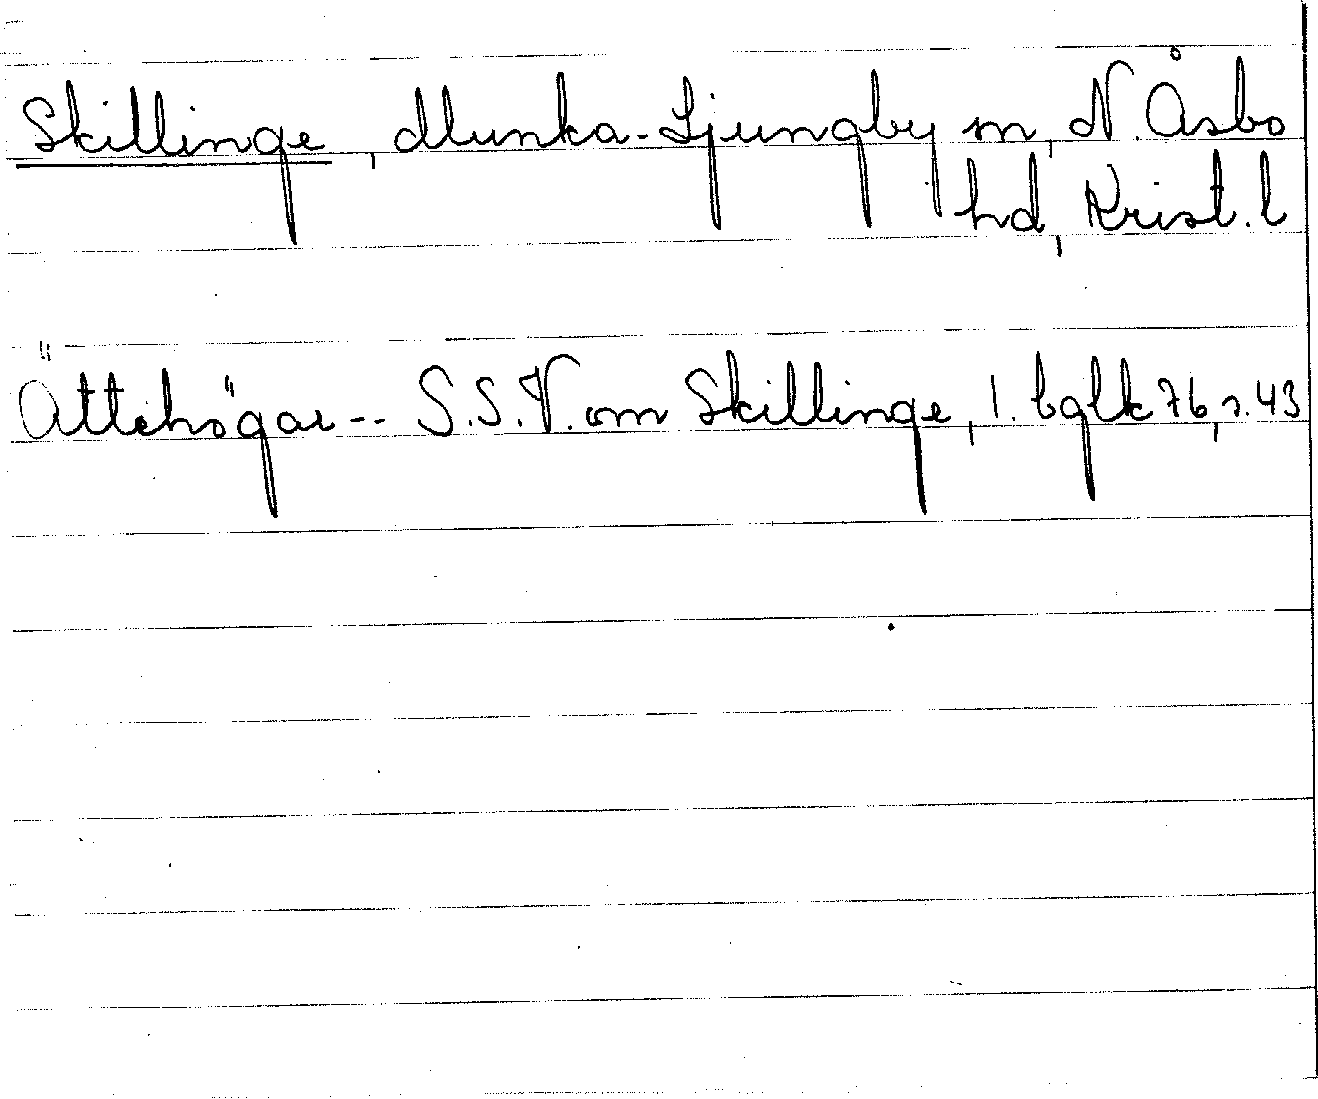 Skillinge, Munka-Ljungby sn, N. Åsbo
hd, Krist. l
Ättehögar -- S.S.V. om Skillinge, l. bglk 76, s. 43